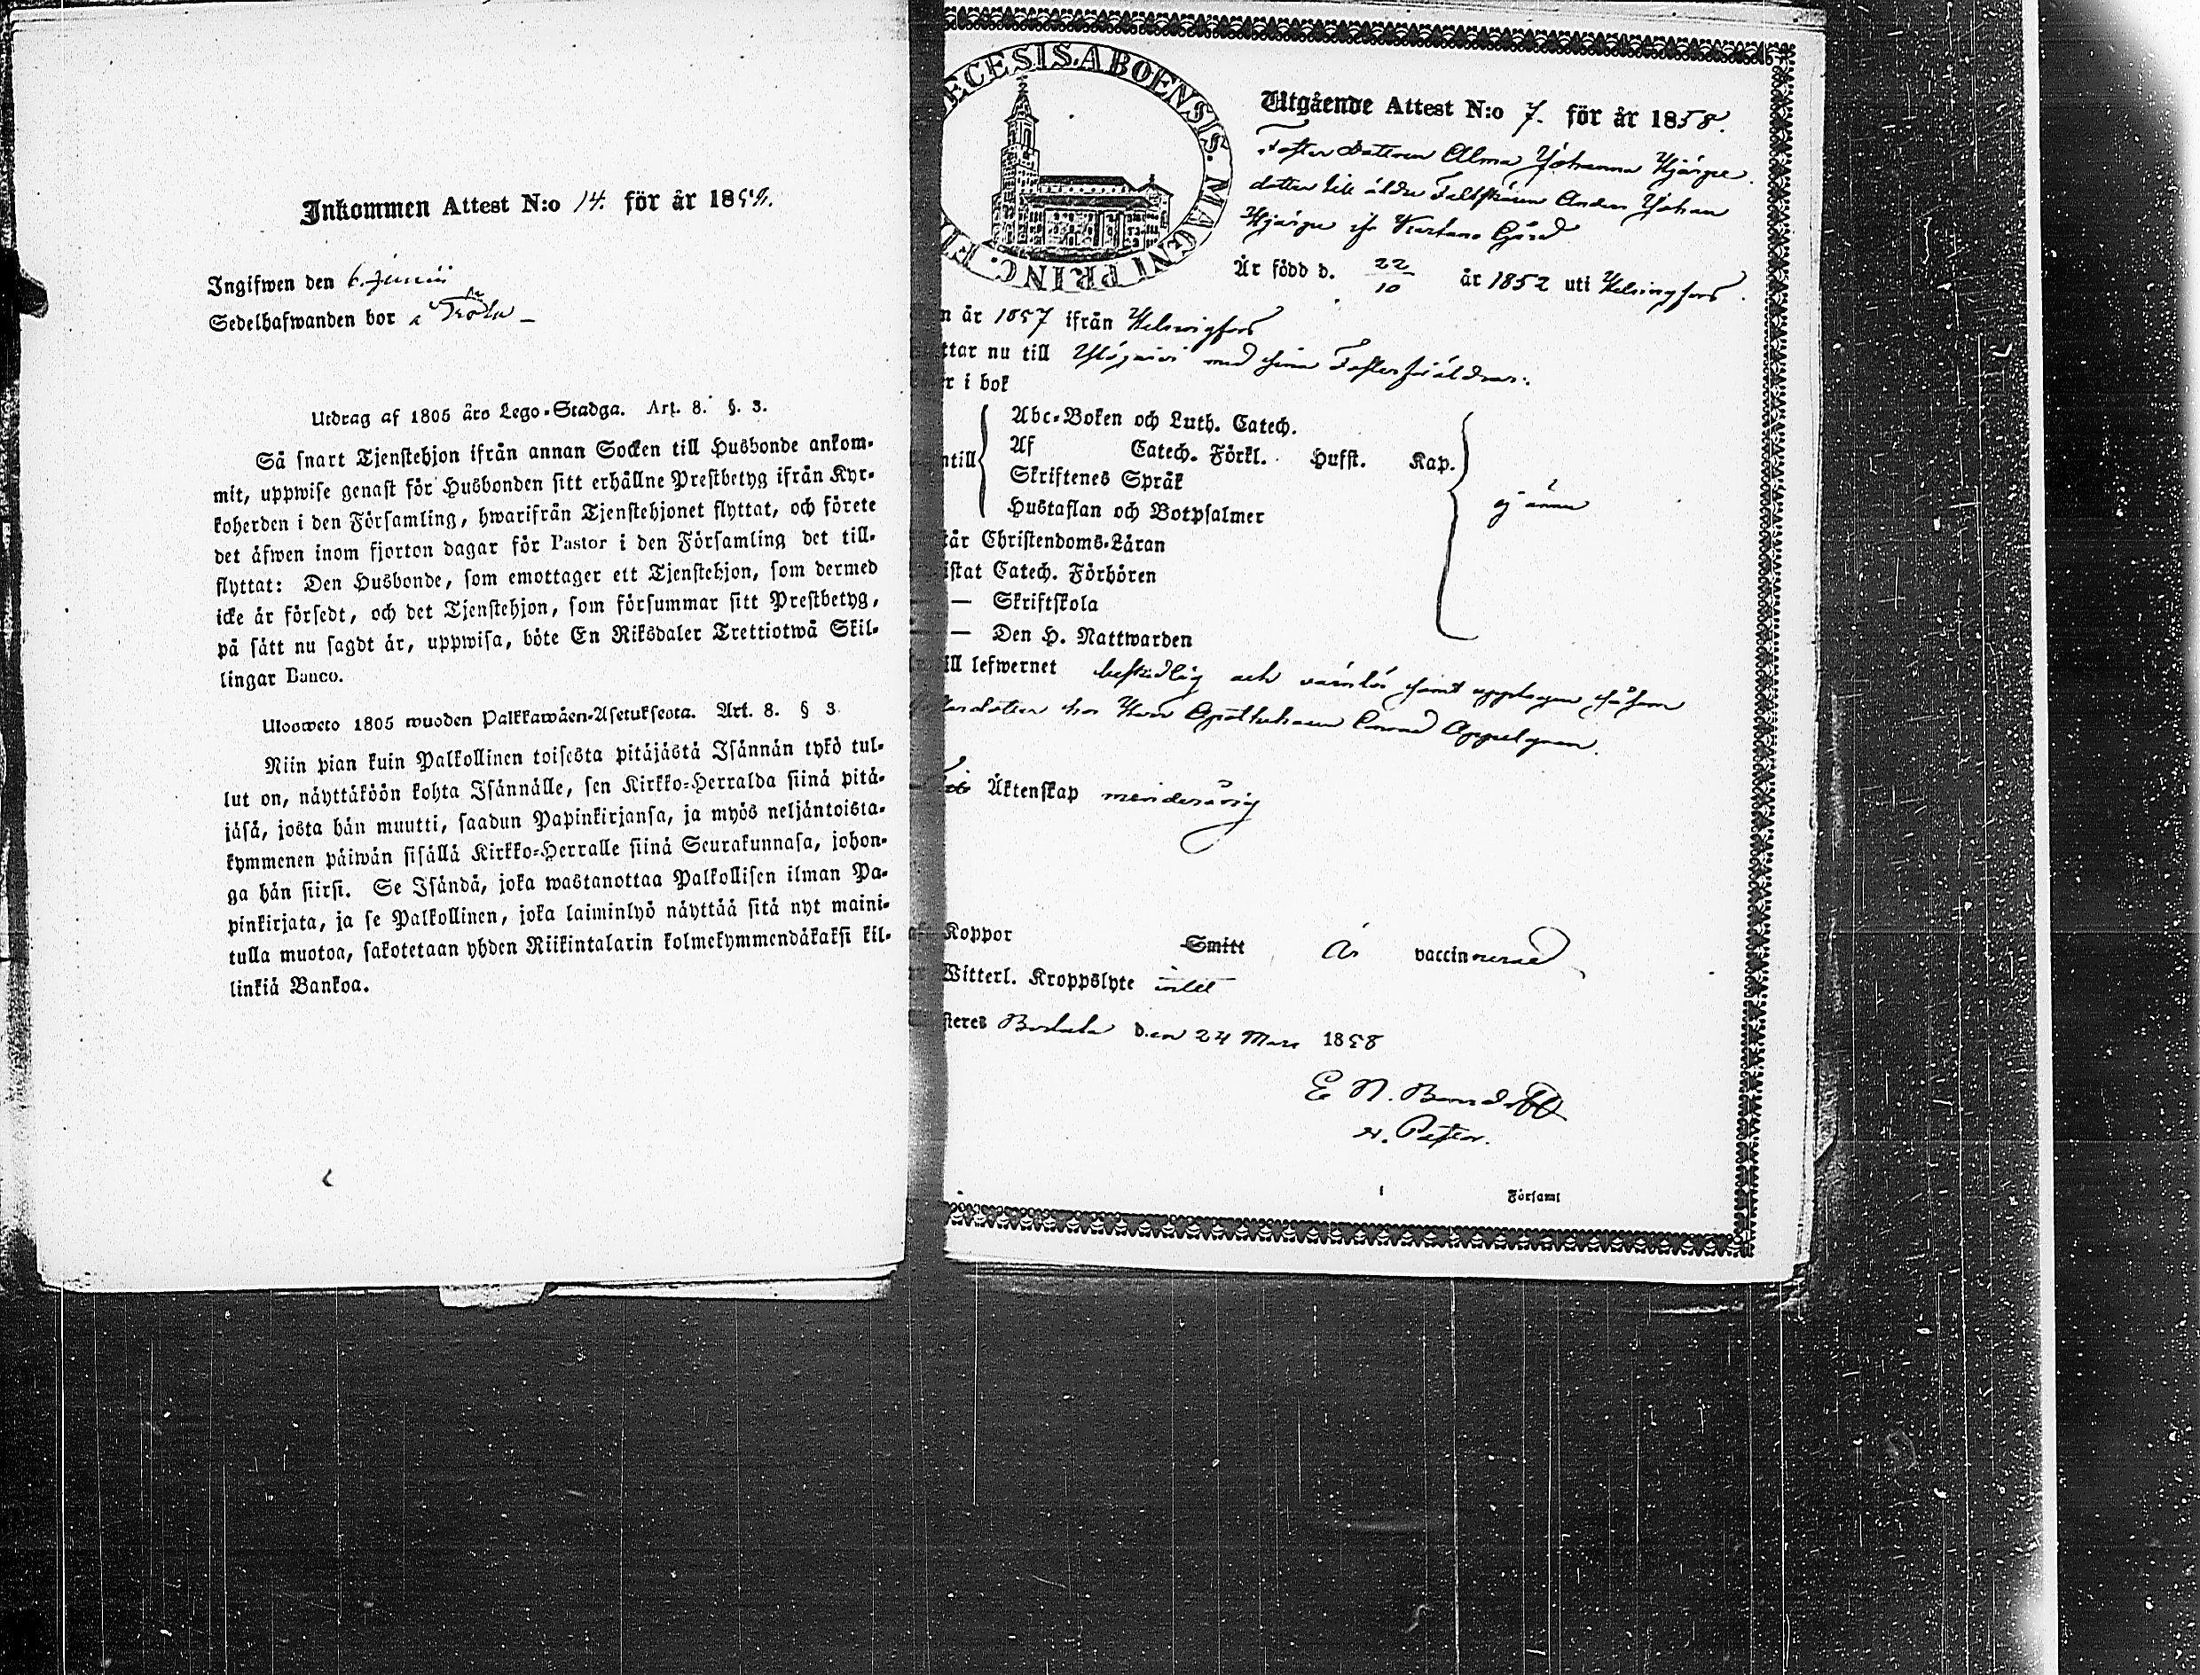 Inkommen Attest N:o 14. för år 185
Ingifwen den 6. Junii
Sedelhafwanden bor
Utdrag af 1805 års Lego-Stadga. Art. 8. §. 3.
Så snart Tjenstehjon ifrån annan Socken till Husbonde ankom-
mit, uppwise genast för Husbonden sitt erhållne Prestbetyg ifrån Kyr-
koherden i den Församling, hwarifrån Tjenstehjonet flyttat, och förete
det äfwen inom fjorton dagar för Pastor i den Församling det till-
flyttat: Den Husbonde, som emottager ett Tjenstehjon, som dermed
icke är försedt, och det Tjenstehjon, som försummar sitt Prestbetyg,
på sätt nu sagdt är, uppwisa, böte En Riksdaler Trettiotwå Skil-
lingar Banco.
Ulosweto 1805 wuoden Palkkawäen-Asetuksesta. Art. 8. § 3
Niin pian kuin Palkollinen toisesta pitäjästä Isännän tykö tul-
lut on, näyttäköön kohta Isännälle, sen Kirkko-Herralda siinä pitä-
jäsä, josta hän muutti, saadun Papinkirjansa, ja myös neljäntoista-
kymmenen päiwän sisällä Kirkko-Herralle siinä Seurakunnasa, johon-
ga hän siirsi. Se Isändä, joka wastanottaa Palkollisen ilman Pa-
pinkirjata, ja se Palkollinen, joka laiminlyö näyttää sitä nyt maini-
tulla muotoa, sakotetaan yhden Riikintalarin kolmekymmendäkaksi kil-
linkiä Bankoa.
ECESIS.ABOENSIS.MAGNI PRINC.F
Utgående Attest N:o 7. för år 1858.
Foster dottren Alma Johanna Hjärpe
dotter till äldre Fältskären Anders Johan
Hjärpe Gård
Är född d. 22/10 år 1852 uti Helsingfors.
n år 1857 ifrån Helsingfors
ttar nu till Ylöjärvi med sina Fosterföräldrar.
r i bok
Abc-Boken och Luth. Catech.
ntill Af Catech. Förkl. Husst. Kap.
Skriftenes Språk ej ännu
Hustaflan och Botpsalmer
tår Christendoms-Läran
istat Catech. Förhören
— Skriftskola
— Den H. Nattwarden
ill lefwernet beskedlig och värnlös samt upptagen såsom
dotter hos Herr Apothekaren Conrad Appelgren.
Äktenskap minderårig
af Koppor Smitt Är vaccinnerad
Witterl. Kroppslyte intet
steres den 24 Mars 1858
E N.
Församl